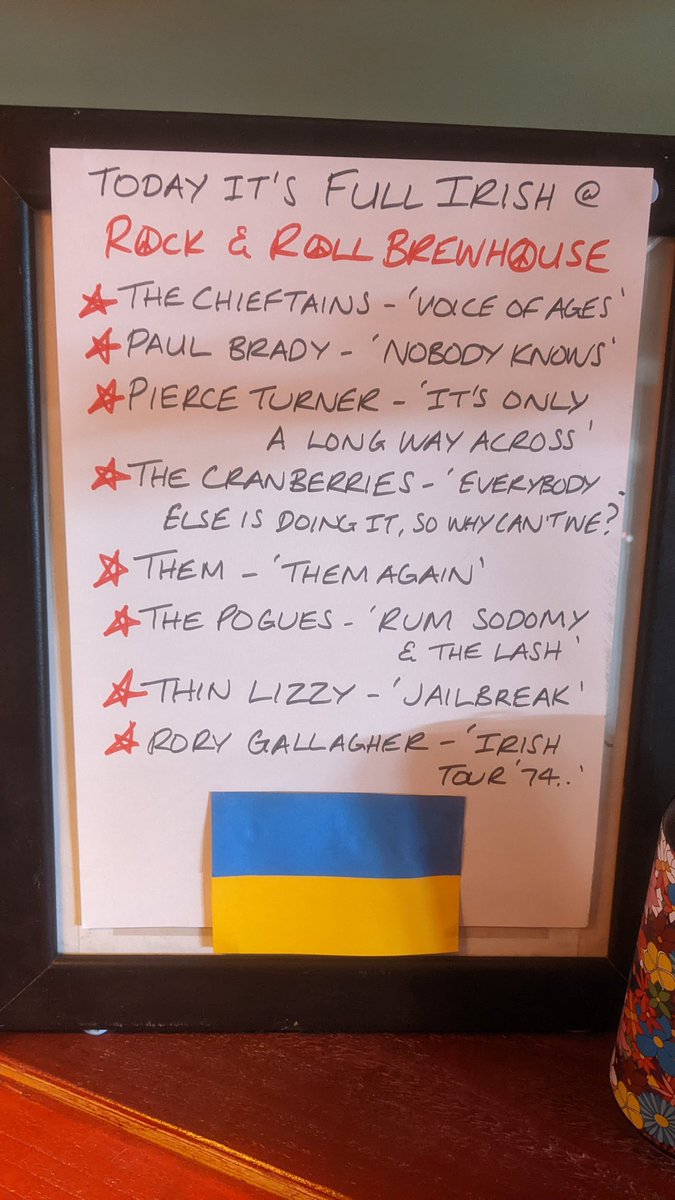 TODAY IT'S FULL IRISH @
ROCK & ROLL BREWHOUSE
THE CHIEFTAINS - 'VOICE OF AGES'
PAUL BRADY - 'NOBODY KNOWS'
PIERCE TURNER - 'IT'S ONLY
A LONG WAY ACROSS'
THE CRANBERRIES - 'EVERYBODY
ELSE IS DOING IT, SO WHY CAN'T WE?'
THEM - 'THEM AGAIN'
THE POGUES - 'RUM SODOMY
& THE LASH'
THIN LIZZY - 'JAILBREAK'
RORY GALLAGHER - 'IRISH
TOUR '74..'